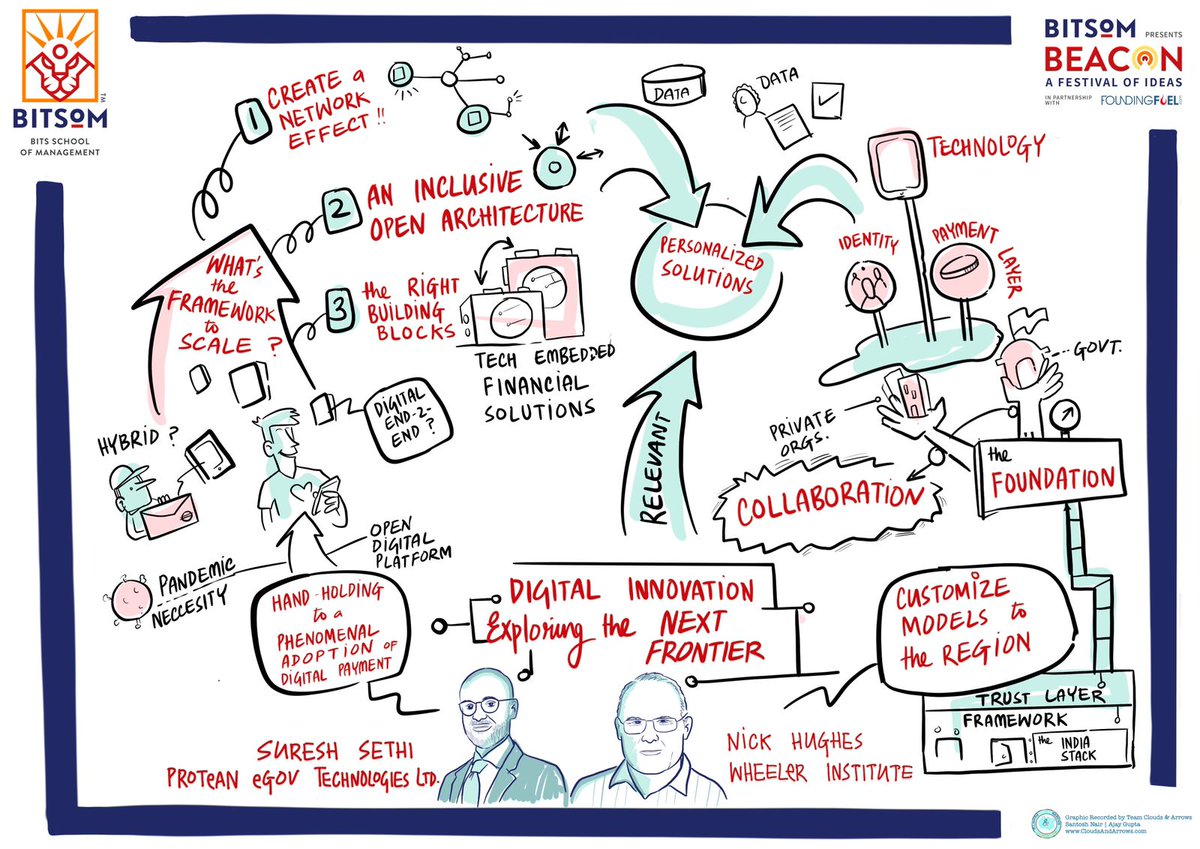 BITSoM
TM
BITS SCHOOL
OF MANAGEMENT
BITSoM PRESENTS
BEACON
A FESTIVAL OF IDEAS
IN PARTNERSHIP
WITH
FOUNDINGFUEL
1
CREATE a
NETWORK
EFFECT!!
DATA
DATA
TECHNOLOGY
2
AN INCLUSIVE
OPEN ARCHITECTURE
PERSONALIZED
SOLUTIONS
IDENTITY
PAYMENT LAYER
WHAT'S
the
FRAMEWORK
to
SCALE?
3
the RIGHT
BUILDING
BLOCKS
TECH EMBEDDED
FINANCIAL
SOLUTIONS
GOVT.
DIGITAL
END-2-
END?
HYBRID?
RELEVANT
PRIVATE
ORGS.
COLLABORATION
the
FOUNDATION
OPEN
DIGITAL
PLATFORM
PANDEMIC
NECCESITY
HAND-HOLDING
to a
PHENOMENAL
ADOPTION OF
DIGITAL PAYMENT
DIGITAL INNOVATION
Exploring the NEXT
FRONTIER
CUSTOMIZE
MODELS to
the REGION
TRUST LAYER
FRAMEWORK
the INDIA
STACK
SURESH SETHI
PROTEAN eGOV TECHNOLOGIES LTD.
NICK HUGHES
WHEELER INSTITUTE
Graphic Recorded by Team Clouds & Arrows
Santosh Nair | Ajay Gupta
www.CloudsAndArrows.com